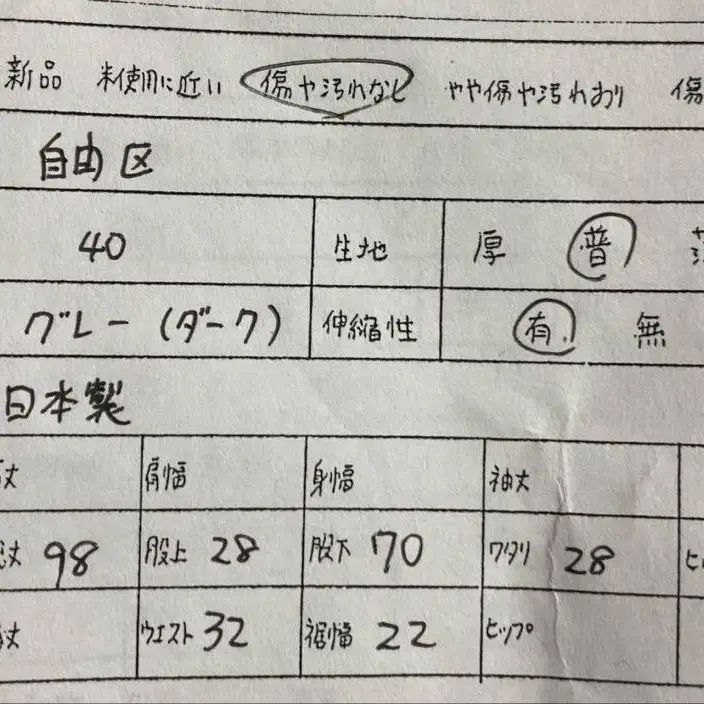 新品 未使用に近い 傷や汚れなし やや傷や汚れあり 傷
自由区
40 生地 厚 普
グレー (ダーク) 伸縮性 有 無
日本製
丈 肩幅 身幅 袖丈
丈 98 股上 28 股下 70 ワタリ 28 ヒ
丈 ウエスト 32 裾幅 22 ヒップ